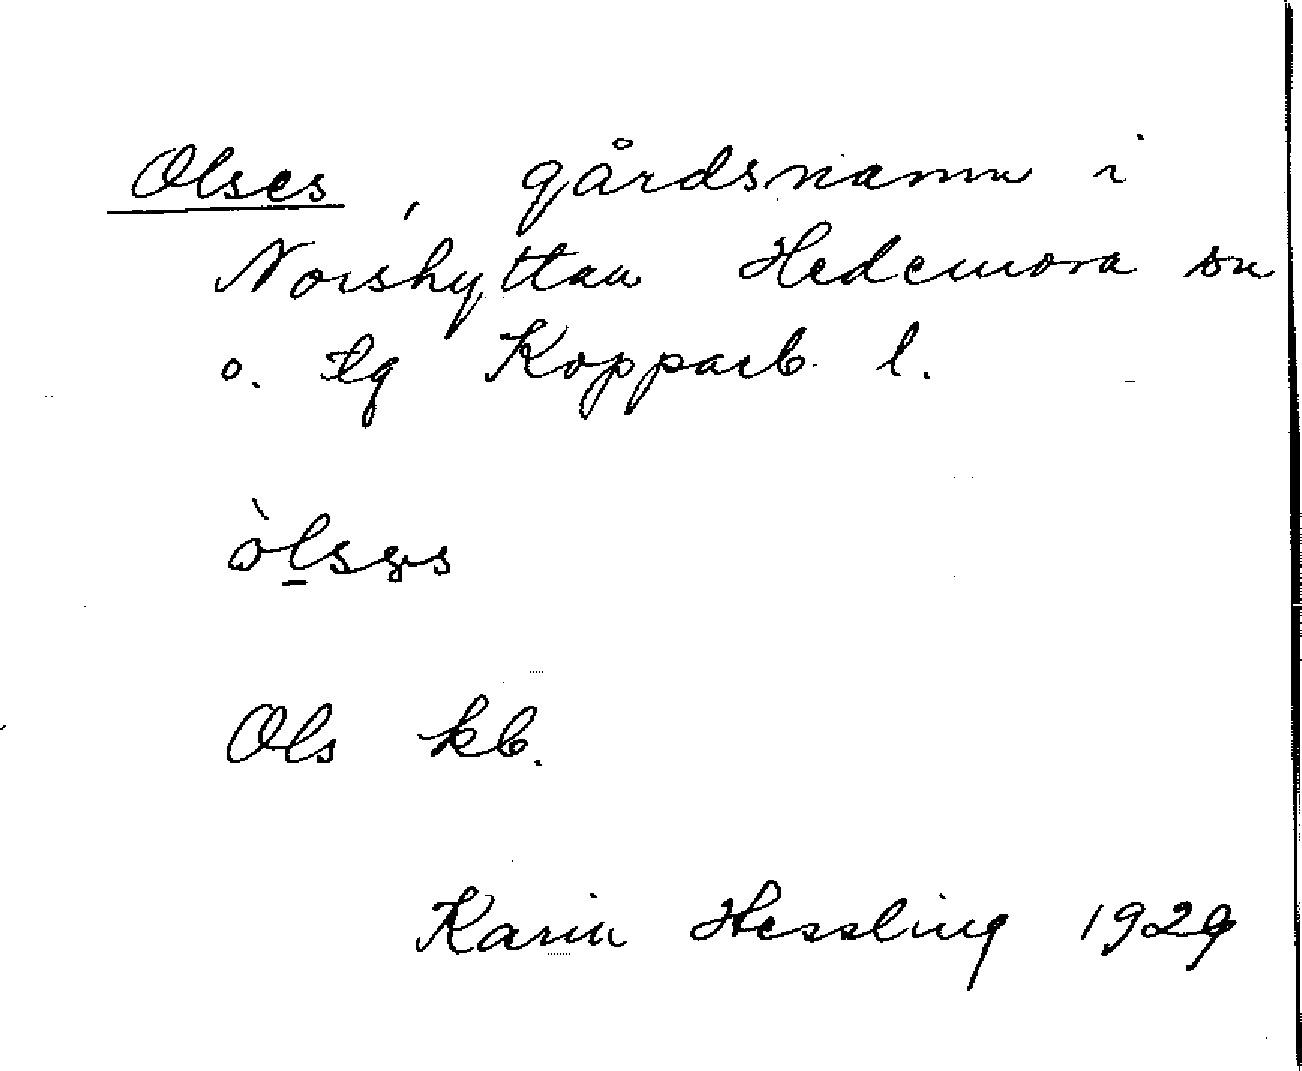 Olses, gårdsnamn i
Norshyttan Hedemora sn
o. tlg Kopparb. l.
Ols kb.
Karin Hessling 1929